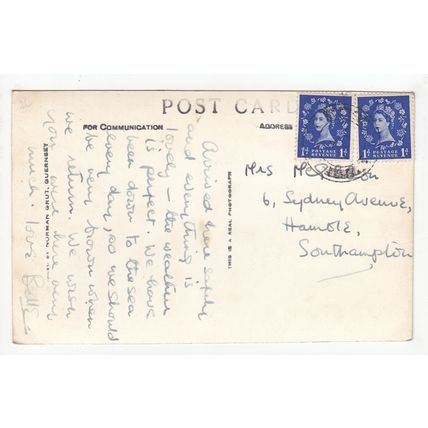 POST CARD
FOR COMMUNICATION
ADDRESS
POSTAGE
REVENUE
1D
1D
POSTAGE
REVENUE
1D
1D
Arrived here safely
and everything is
lovely – the weather
is perfect. We have
been down to the sea
every day, so we should
be very brown when
we return. We wish
you were here very
much. love
NORMAN GRUT, GUERNSEY
THIS IS A REAL PHOTOGRAPH
Mrs
6, Sydney Avenue,
Hamble,
Southampton